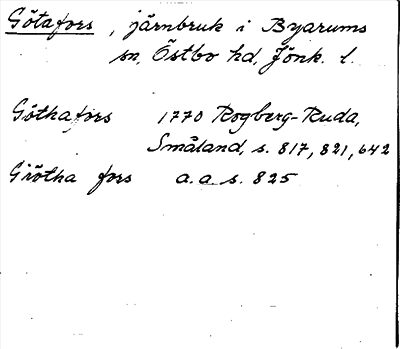 Götafors, järnbruk i Byarums
sn, Östbo hd, Jönk. l.
Göthafors 1770 Rogberg-Ruda,
Småland, s. 817, 821, 642
Giötha fors a.a. s. 825